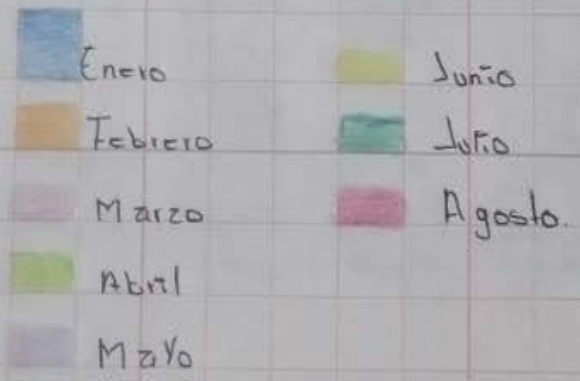 Enero
Febrero
Marzo
Abril
Mayo
Junio
Julio
Agosto.